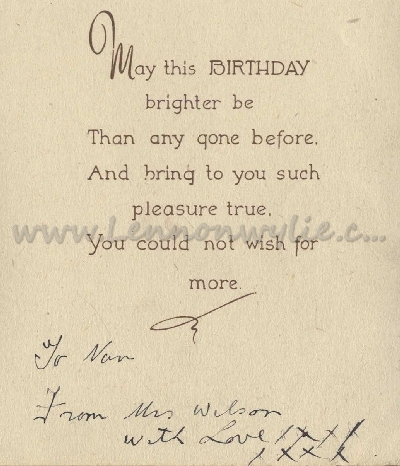 May this BIRTHDAY
brighter be
Than any gone before,
And bring to you such
pleasure true,
www.Lennonwylie.c...
You could not wish for
more.
To Nan
From Mrs Wilson
with Love XXXX
XXXX